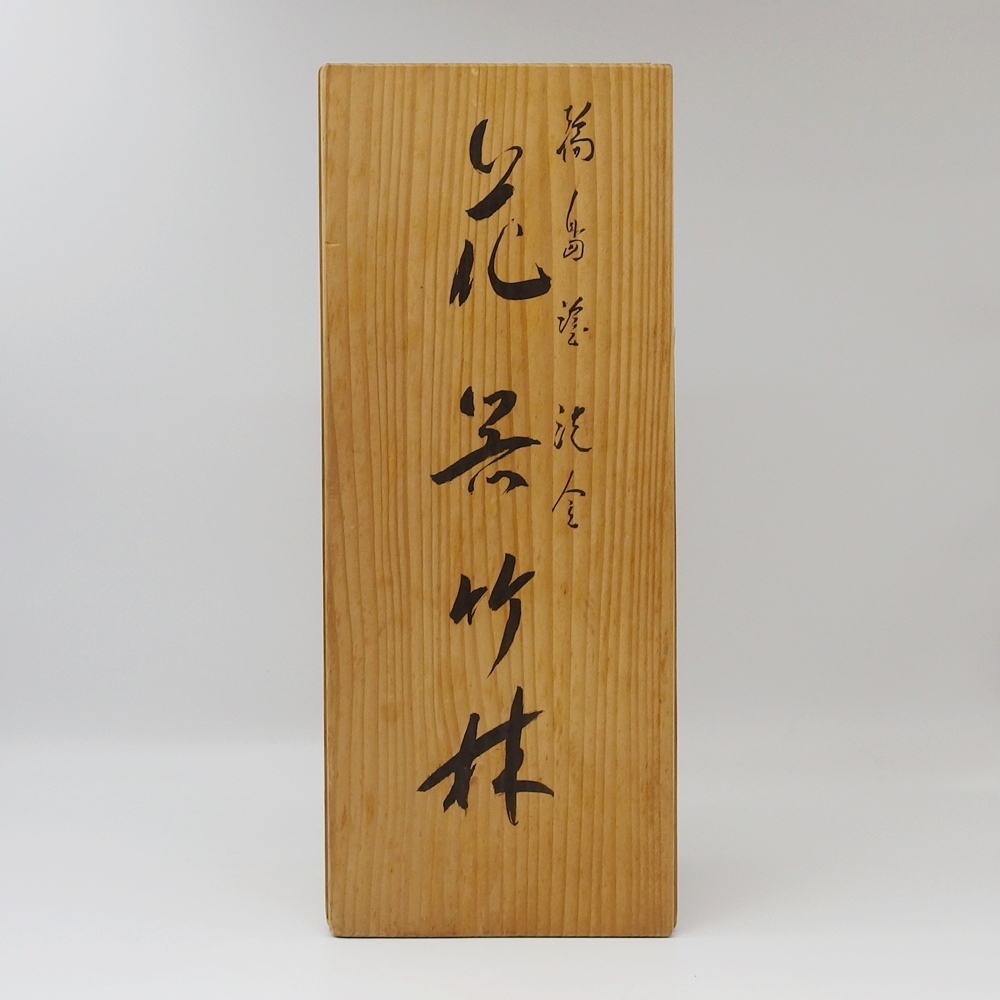 輪島塗 沈金
花器 竹林